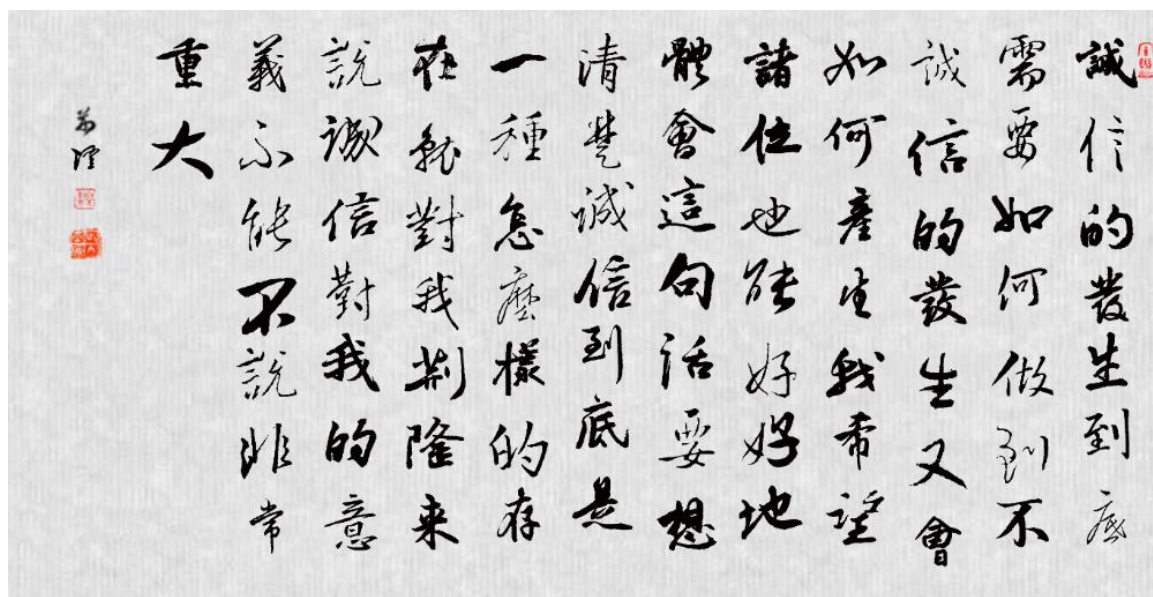 誠信的發生到底
需要如何做到不
誠信的發生又會
如何産生我希望
諸位也能好好地
體會這句話要想
清楚誠信到底是
一種怎麽樣的存
在就對我荆隆来
説誠信對我的意
義不能不説非常
重大